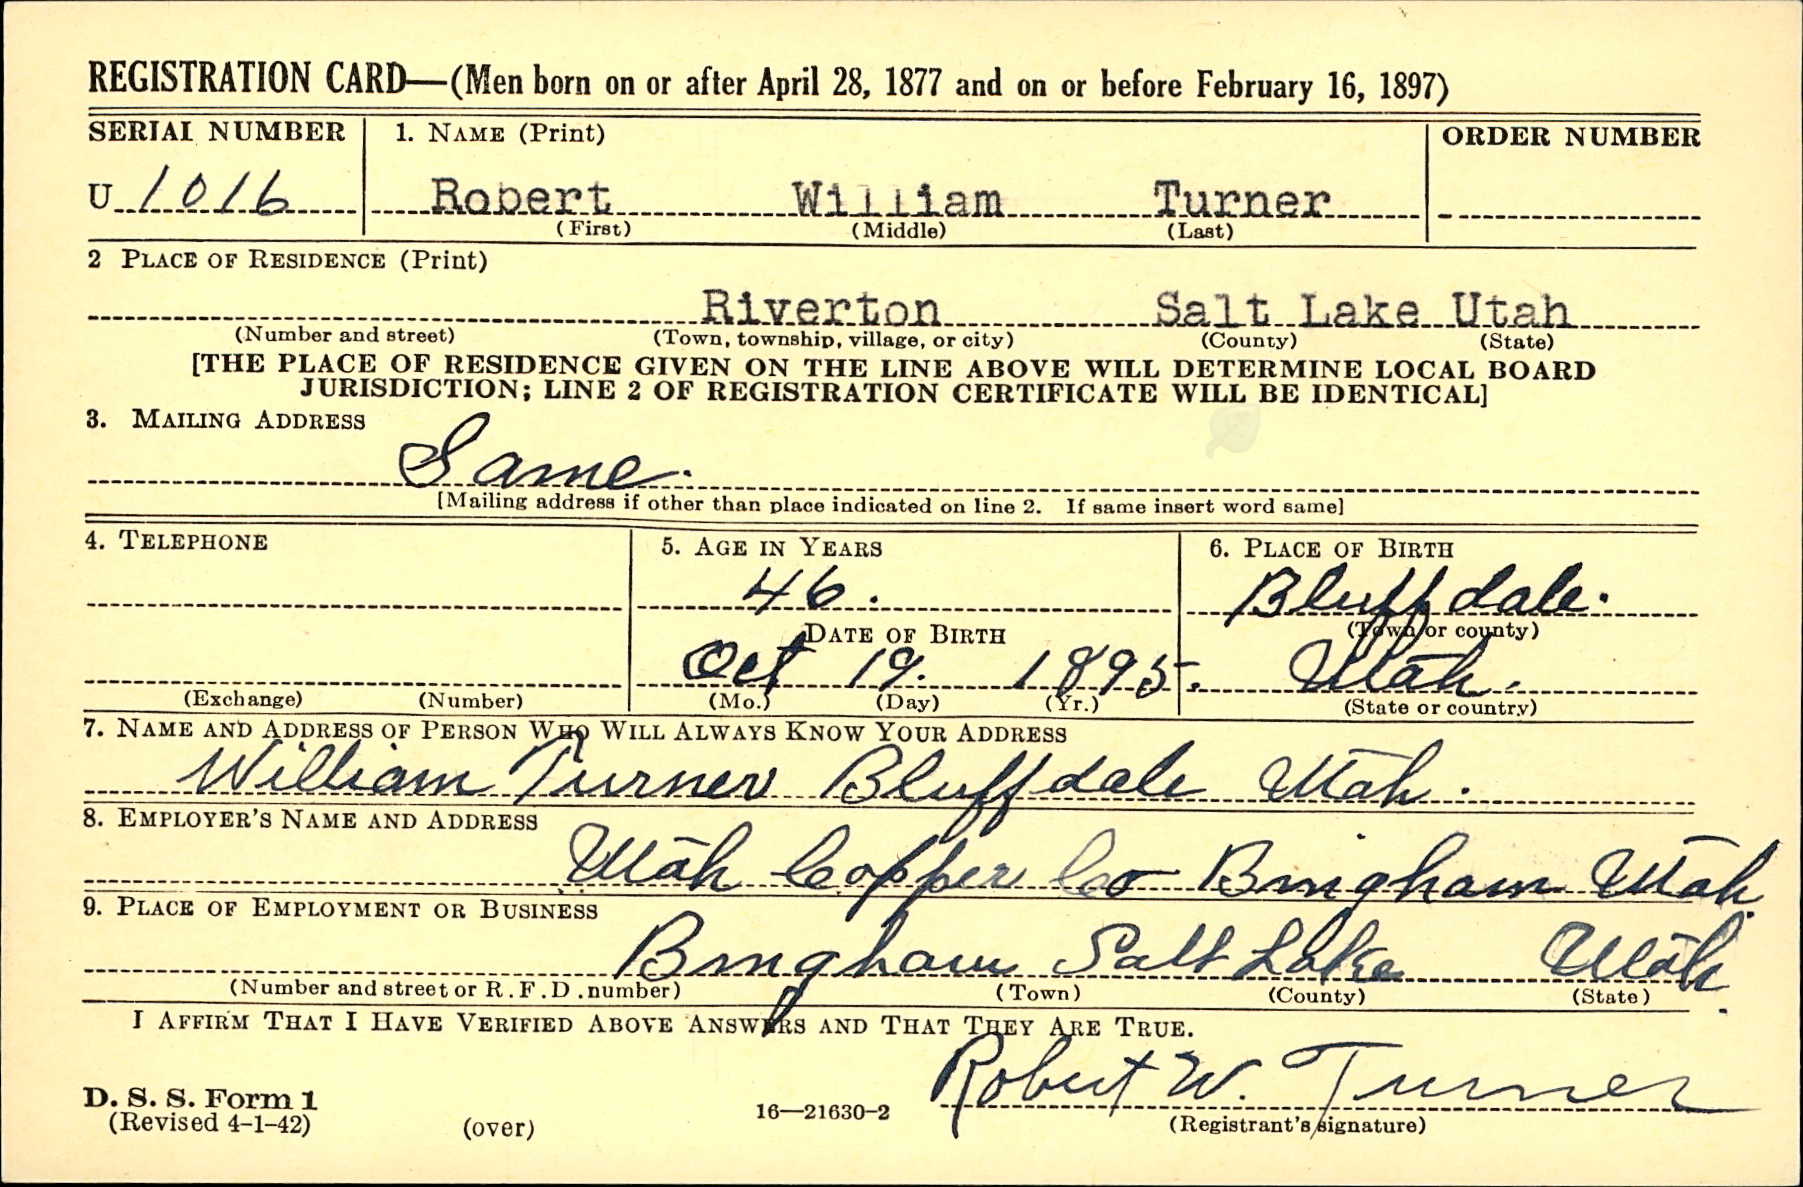 REGISTRATION CARD—(Men born on or after April 28, 1877 and on or before February 16, 1897)
SERIAL NUMBER 1. NAME (Print) ORDER NUMBER
U 1016 Robert William Turner
(First) (Middle) (Last)
2 PLACE OF RESIDENCE (Print)
Riverton Salt Lake Utah
(Number and street) (Town, township, village, or city) (County) (State)
[THE PLACE OF RESIDENCE GIVEN ON THE LINE ABOVE WILL DETERMINE LOCAL BOARD
JURISDICTION; LINE 2 OF REGISTRATION CERTIFICATE WILL BE IDENTICAL]
3. MAILING ADDRESS
Same.
[Mailing address if other than place indicated on line 2. If same insert word same]
4. TELEPHONE 5. AGE IN YEARS 6. PLACE OF BIRTH
46. Bluffdale.
DATE OF BIRTH (Town or county)
Oct 19. 1895. Utah.
(Exchange) (Number) (Mo.) (Day) (Yr.) (State or country)
7. NAME AND ADDRESS OF PERSON WHO WILL ALWAYS KNOW YOUR ADDRESS
William Turner Bluffdale Utah.
8. EMPLOYER'S NAME AND ADDRESS
Utah Copper Co Bingham Utah.
9. PLACE OF EMPLOYMENT OR BUSINESS
Bingham Salt Lake Utah.
(Number and street or R. F. D. number) (Town) (County) (State)
I AFFIRM THAT I HAVE VERIFIED ABOVE ANSWERS AND THAT THEY ARE TRUE.
Robert W. Turner
D. S. S. Form 1
(Revised 4-1-42) (over) 16—21630-2 (Registrant's signature)